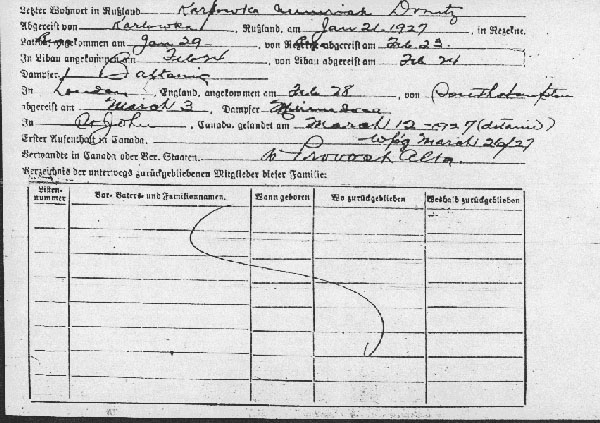 Letzter Wohnort in Rußland Karlowka Donitz
Abgereist von Karlowka, Rußland, am Jan 21. 1927, in Rezekne.
angekommen am Jan 29, von abgereist am Feb. 23.
In Libau angekommen am Feb 24, von Libau abgereist am Feb 24
Dampfer Baltanic
In London, England, angekommen am Feb 28, von Southampton
abgereist am March 3, Dampfer Minnedosa
In St John, Canada, gelandet am March 12 - 1927 (detained)
Erster Aufenthalt in Canada. Wpg March 26/27
Verwandte in Canada oder Ver. Staaten. to Provost Alta.
Verzeichnis der unterwegs zurückgebliebenen Mitglieder dieser Familie:
Listennummer Vor- Vaters- und Familiennamen. Wann geboren Wo zurückgeblieben Weshalb zurückgeblieben